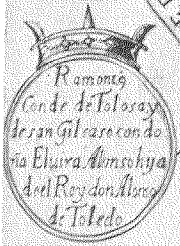 Ramon
Conde de Tolosa y
de san Gil caso con do
ña Eluira Alonso hya
de el Rey don Alonso
de Toledo